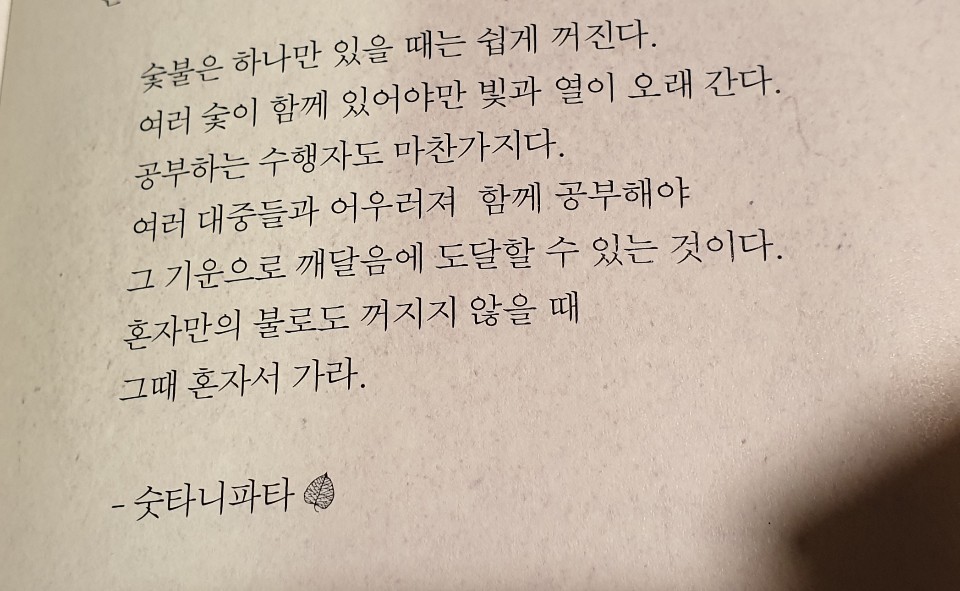 숯불은 하나만 있을 때는 쉽게 꺼진다.
여러 숯이 함께 있어야만 빛과 열이 오래 간다.
공부하는 수행자도 마찬가지다.
여러 대중들과 어우러져 함께 공부해야
그 기운으로 깨달음에 도달할 수 있는 것이다.
혼자만의 불로도 꺼지지 않을 때
그때 혼자서 가라.
- 숫타니파타